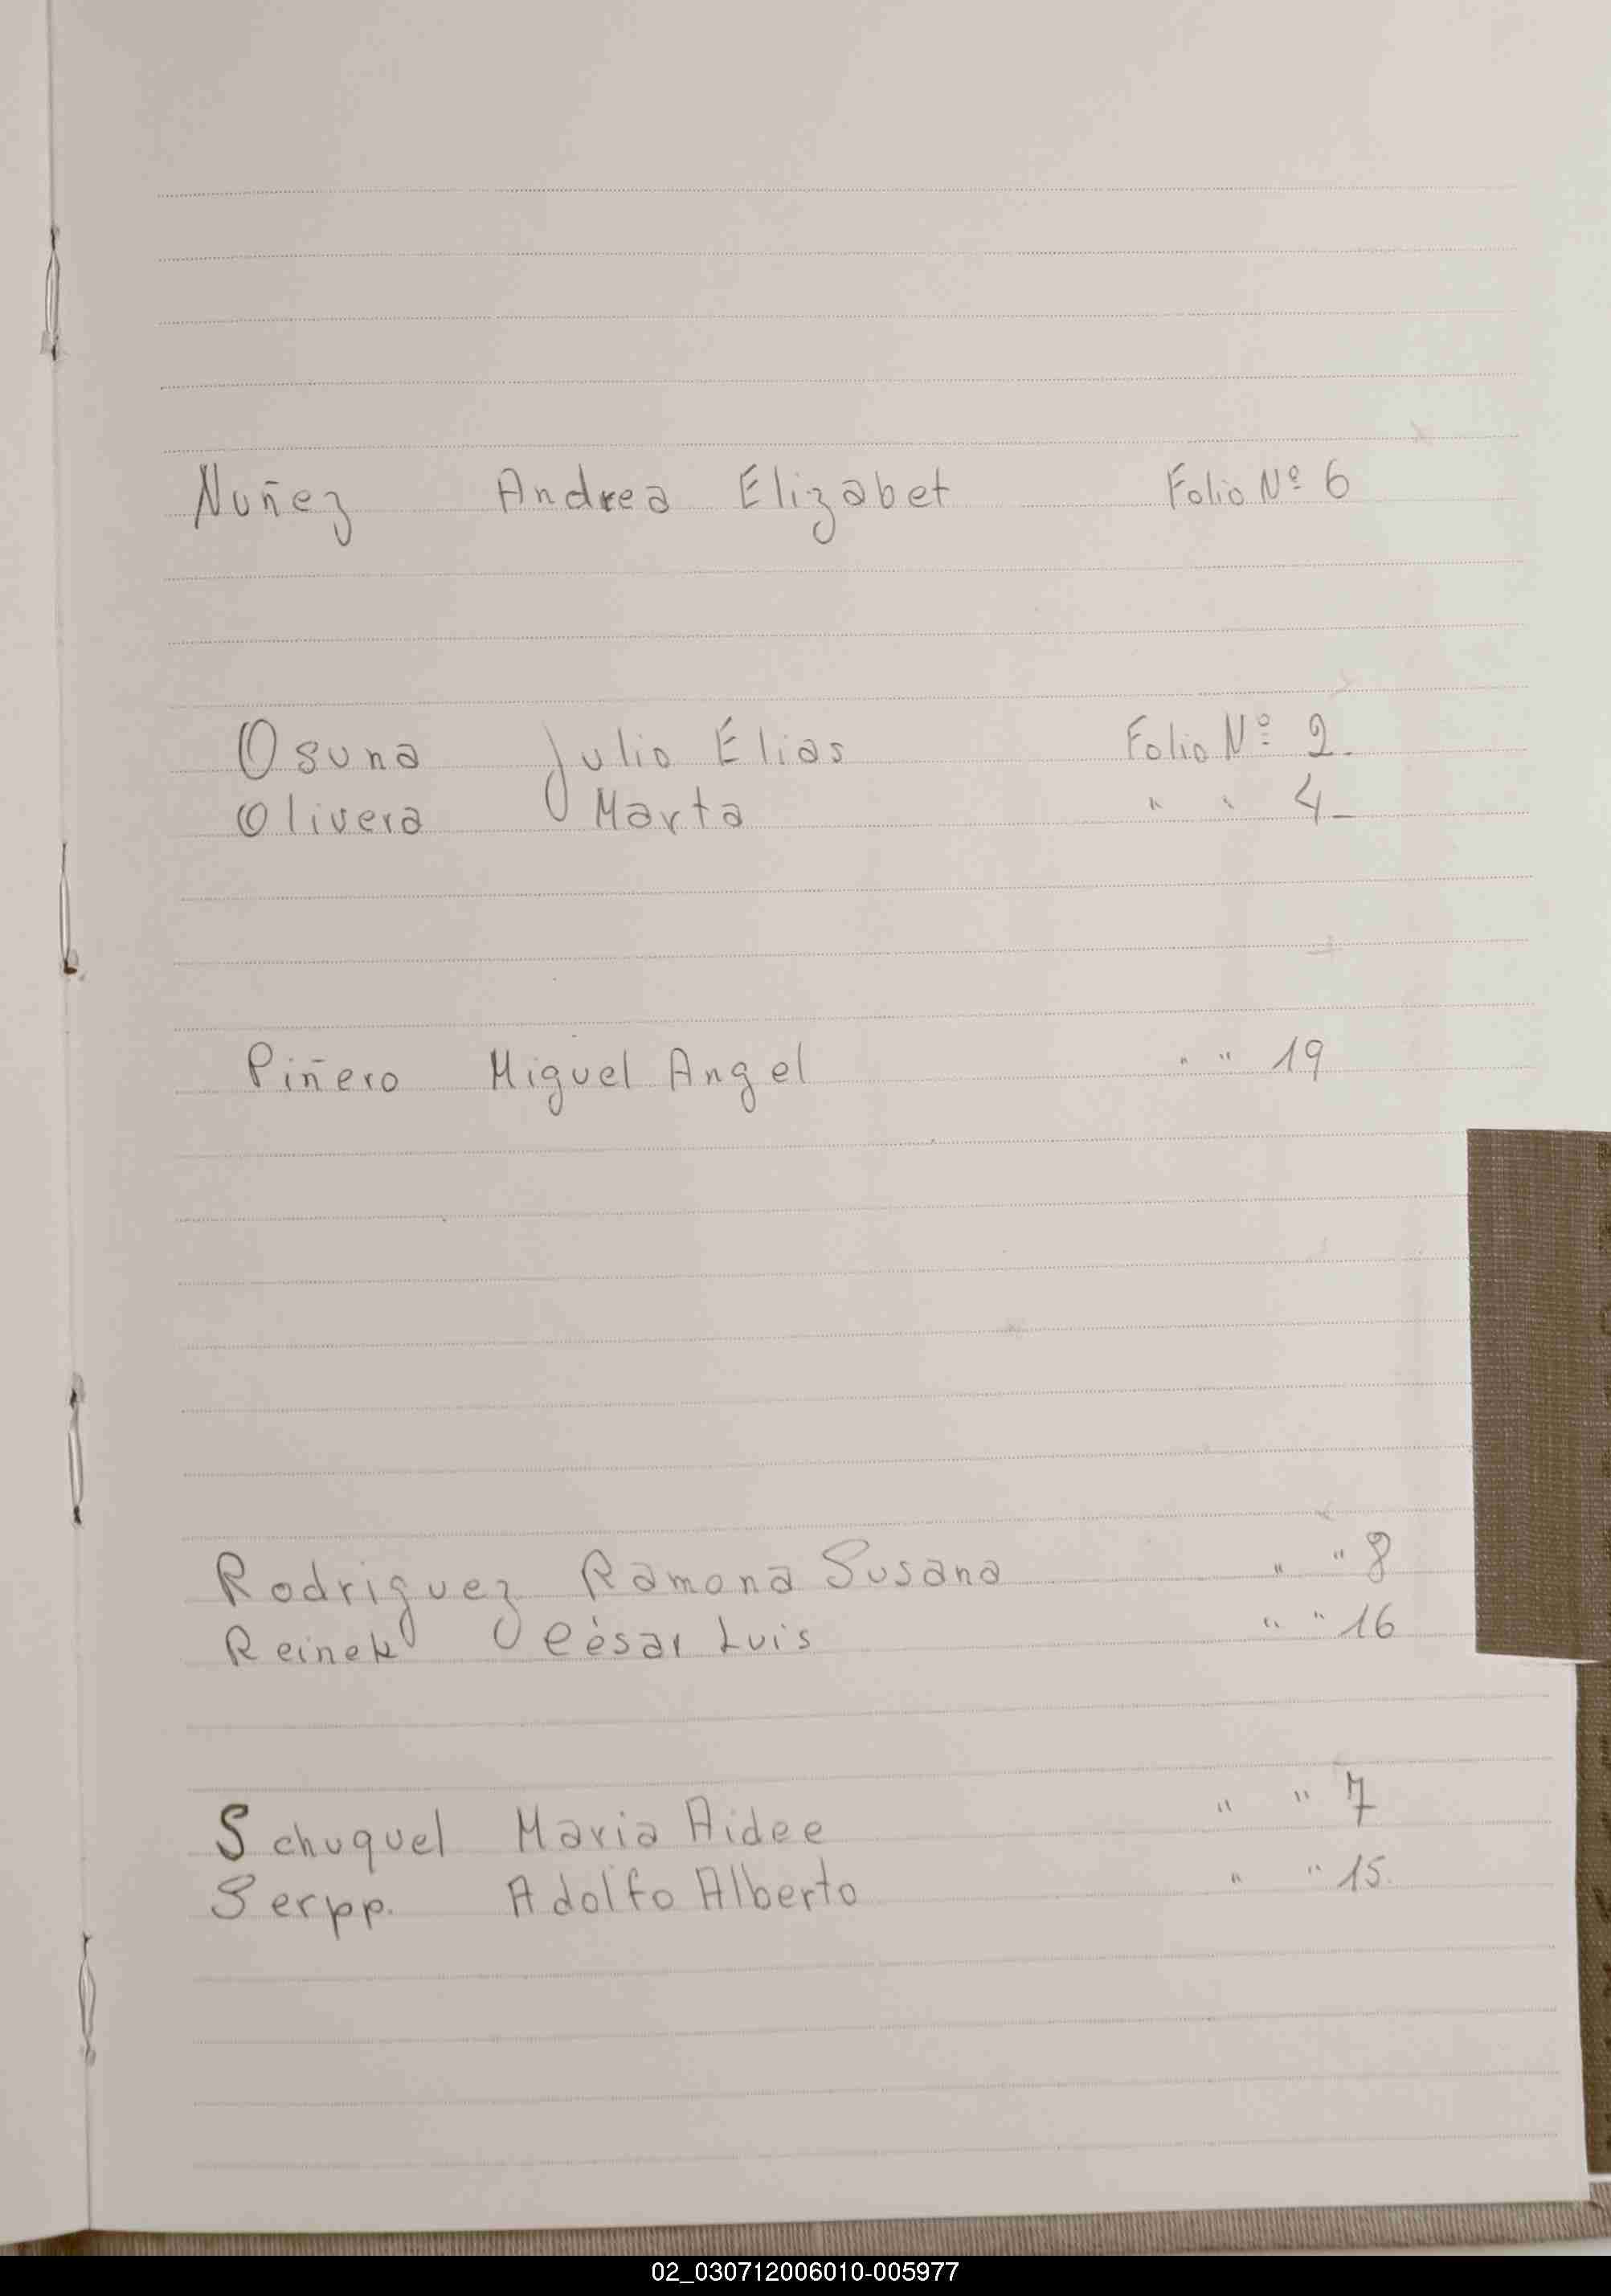 Nuñez Andrea Elizabet Folio Nº 6
Osuna Julio Elias Folio Nº 2.
Olivera Marta " " 4_
Piñero Miguel Angel " " 19
Rodriguez Ramona Susana " " 8
Reinek César Luis " " 16
Schuquel Maria Aidee " " 7
Serpp. Adolfo Alberto " " 15.
02_030712006010-005977